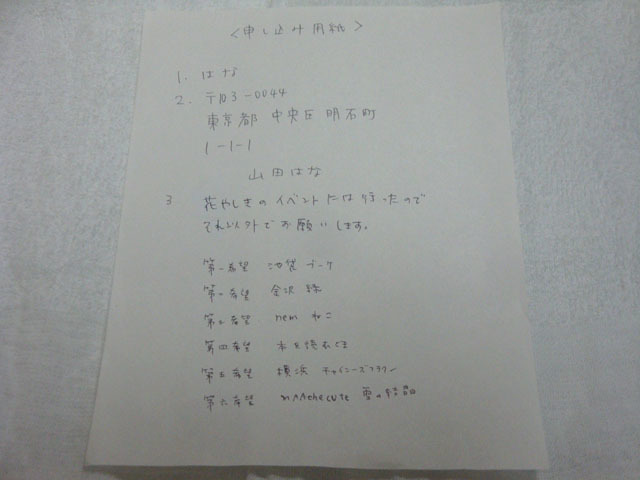 <申し込み用紙>
1. はな
2. 〒103-0044
東京都 中央区 明石町
1-1-1
山田はな
3 花やしきのイベントには行ったので
それ以外でお願いします。
第一希望 池袋 ブーケ
第二希望 金沢
第三希望 nem ねこ
第四希望 本を
第五希望 横浜 チャイニーズフラワー
第六希望 mAAchecute 雪の結晶